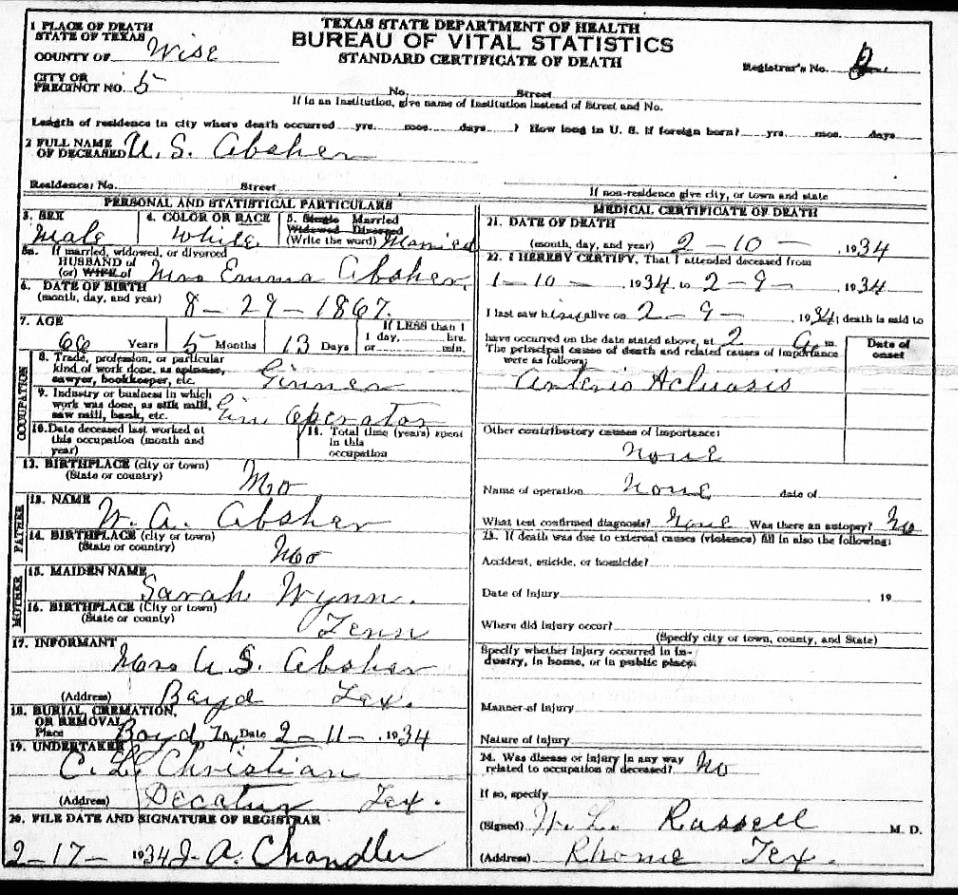 TEXAS STATE DEPARTMENT OF HEALTH
BUREAU OF VITAL STATISTICS
STANDARD CERTIFICATE OF DEATH
1 PLACE OF DEATH
STATE OF TEXAS
COUNTY OF Wise
Registrar's No. 2
CITY OR
PRECINCT NO. 5 No. Street
If in an Institution, give name of Institution instead of Street and No.
Length of residence in city where death occurred yrs. mos. days ? How long in U. S. if foreign born? yrs. mos. days
2 FULL NAME
OF DECEASED U. S. Absher
Residence: No. Street
If non-residence give city, or town and state
PERSONAL AND STATISTICAL PARTICULARS
3. SEX
Male
4. COLOR OR RACE
White
5. Single Married
Widowed Divorced
(Write the word) Married
5a. If married, widowed, or divorced
HUSBAND of
(or) WIFE of Mrs Emma Absher
6. DATE OF BIRTH
(month, day, and year) 8-29-1867.
7. AGE
66 Years 5 Months 13 Days
If LESS than 1
1 day, hrs.
or min.
OCCUPATION
8. Trade, profession, or particular
kind of work done, as spinner,
sawyer, bookkeeper, etc. Ginner
9. Industry or business in which
work was done, as silk mill,
saw mill, bank, etc. Gin Operator
10. Date deceased last worked at
this occupation (month and
year)
11. Total time (years) spent
in this
occupation
12. BIRTHPLACE (city or town)
(State or country) Mo
FATHER
13. NAME
W. A. Absher
14. BIRTHPLACE (city or town)
(State or country) Mo
MOTHER
15. MAIDEN NAME
Sarah Wynn.
16. BIRTHPLACE (City or town)
(State or country) Tenn
17. INFORMANT
Mrs U S. Absher
(Address) Boyd Tex.
18. BURIAL, CREMATION,
OR REMOVAL
Place Boyd Tx, Date 2-11-, 1934
19. UNDERTAKER
C. L. Christian
(Address) Decatur Tex.
20. FILE DATE AND SIGNATURE OF REGISTRAR
2-17- 1934 J. A. Chandler
MEDICAL CERTIFICATE OF DEATH
21. DATE OF DEATH
(month, day, and year) 2-10-, 1934
22. I HEREBY CERTIFY, That I attended deceased from
1-10-, 1934 to 2-9-, 1934
I last saw him alive on 2-9-, 1934; death is said to
have occurred on the date stated above, at 2 A m.
The principal cause of death and related causes of importance
were as follows:
Date of
onset
Other contributory causes of importance:
None
Name of operation None date of
What test confirmed diagnosis? None Was there an autopsy? No
23. If death was due to external causes (violence) fill in also the following:
Accident, suicide, or homicide?
Date of Injury , 19
Where did injury occur?
(Specify city or town, county, and State)
Specify whether injury occurred in in-
dustry, in home, or in public place.
Manner of Injury
Nature of Injury
24. Was disease or injury in any way
related to occupation of deceased? No
If so, specify
(Signed) W. L. Russell M. D.
(Address) Rhome Tex.